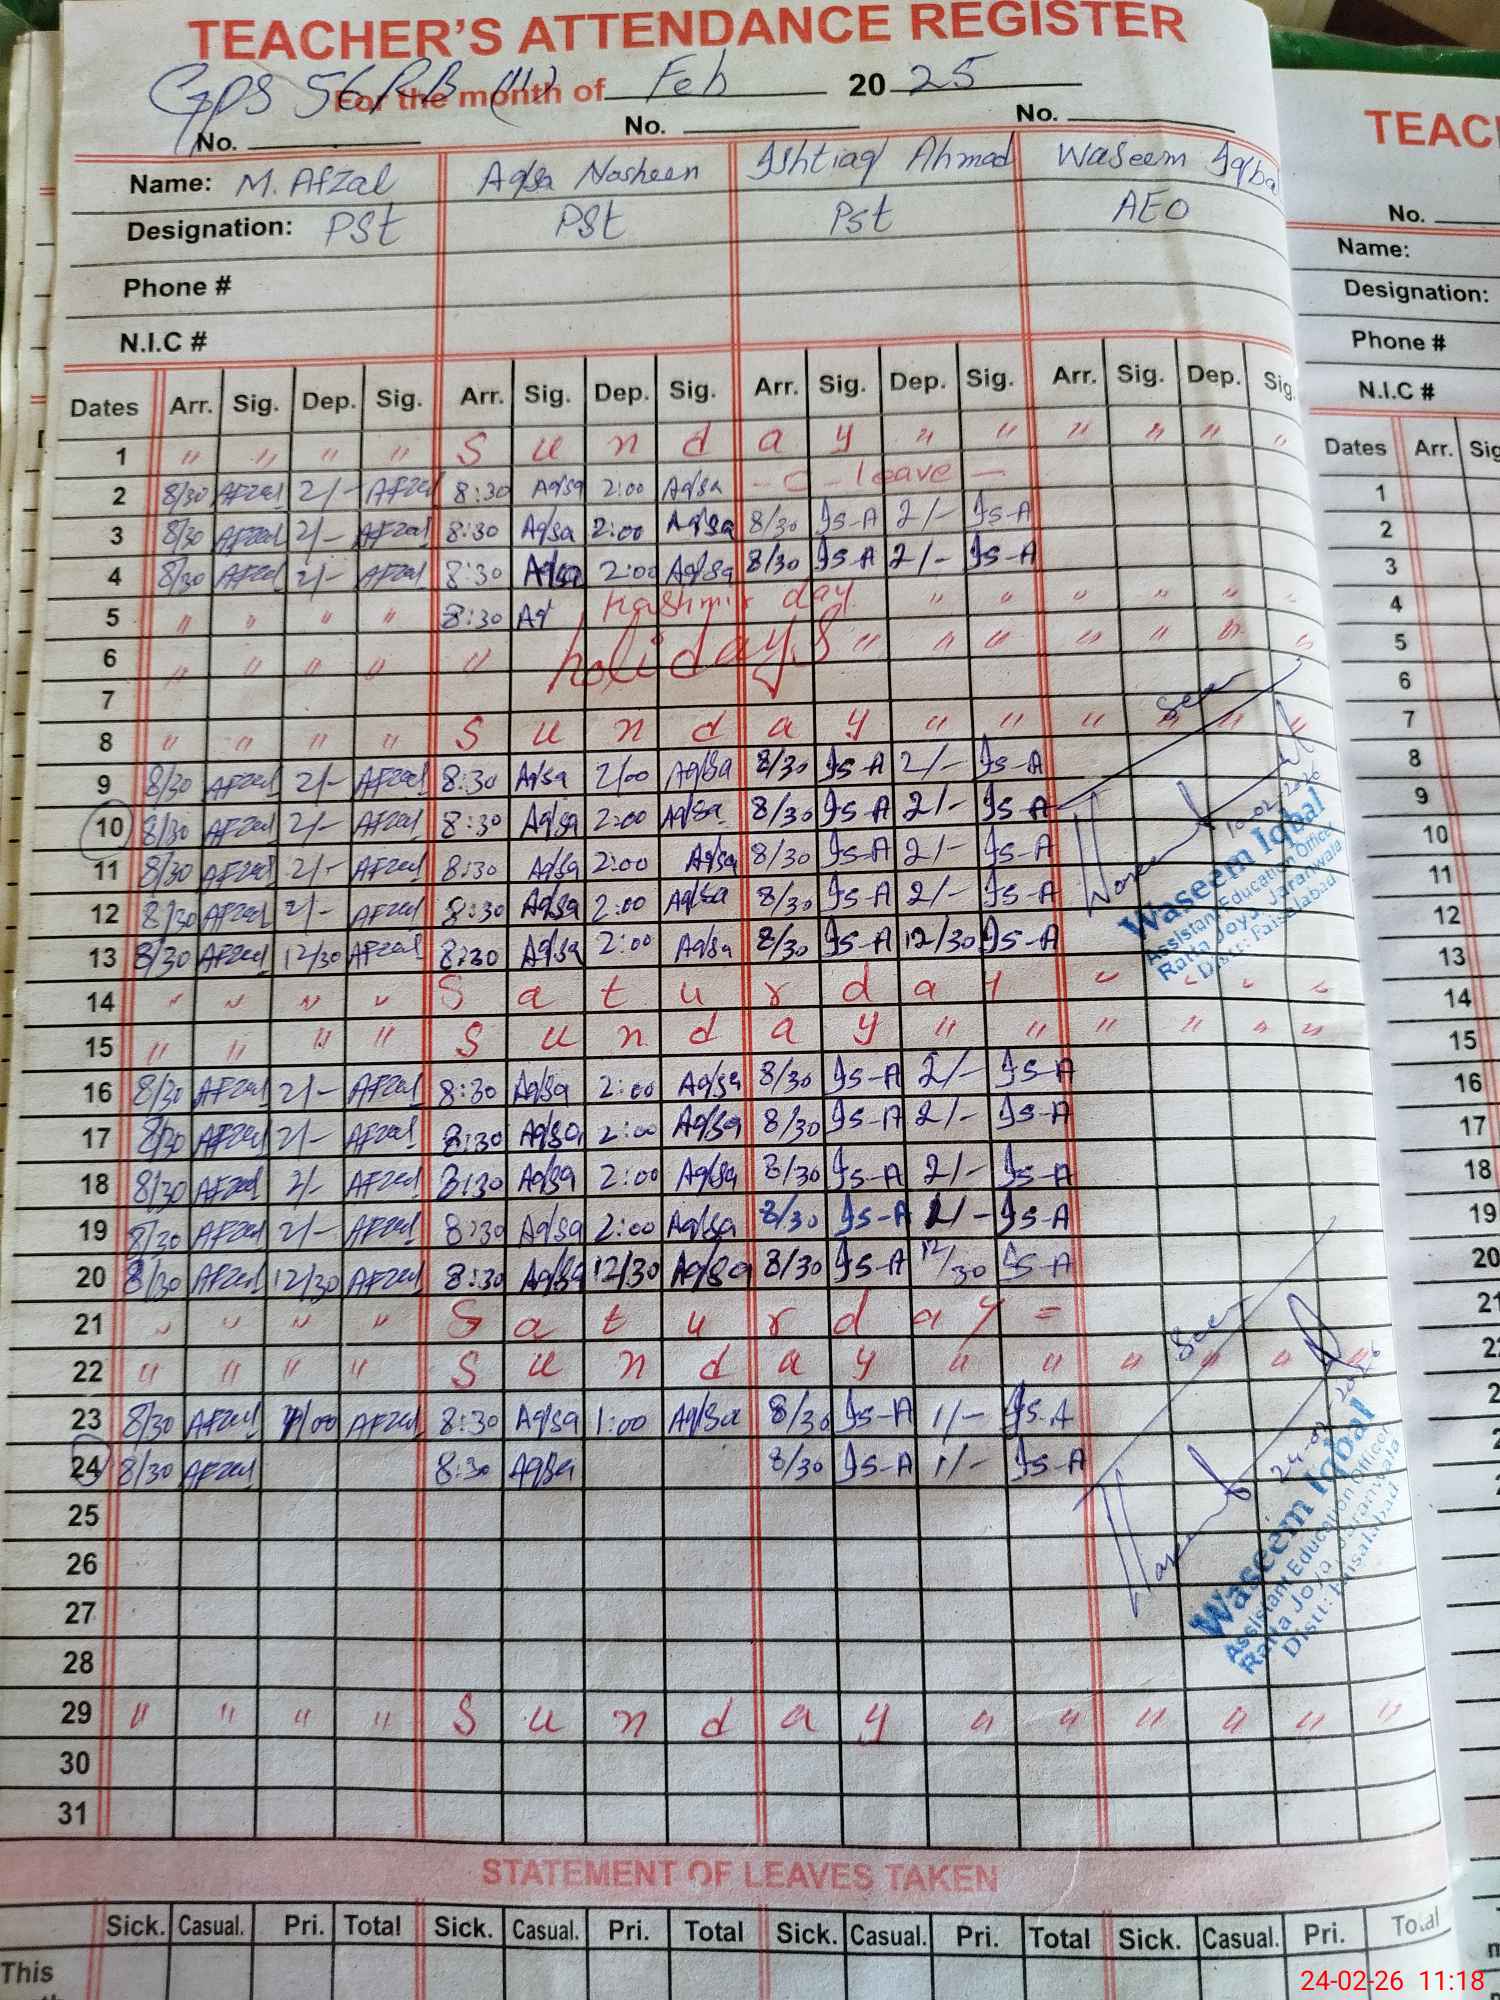 TEACHER'S ATTENDANCE REGISTER
GPS 56 RB (11)
For the month of Feb 20 25
No. No. No.
Name: M. Afzal Aqsa Nosheen Ishtiaq Ahmad Waseem Iqbal
Designation: PSt PSt Pst AEO
Phone #
N.I.C #
Dates Arr. Sig. Dep. Sig. Arr. Sig. Dep. Sig. Arr. Sig. Dep. Sig. Arr. Sig. Dep. Sig.
1 " " " " S u n d a y " " " " " "
2 8/30 Afzal 2/- Afzal 8:30 Aqsa 2:00 Aqsa - C - leave -
3 8/30 Afzal 2/- Afzal 8:30 Aqsa 2:00 Aqsa 8/30 Is-A 2/- Is-A
4 8/30 Afzal 2/- Afzal 8:30 Aqsa 2:00 Aqsa 8/30 Is-A 2/- Is-A
5 " " " " 8:30 Aq Kashmir day " " " " " "
6 " " " " " holidays " " " " " " "
7
8 " " " " S u n d a y " " " " " "
9 8/30 Afzal 2/- Afzal 8:30 Aqsa 2/00 Aqsa 8/30 Is-A 2/- Is-A
10 8/30 Afzal 2/- Afzal 8:30 Aqsa 2:00 Aqsa 8/30 Is-A 2/- Is-A
11 8/30 Afzal 2/- Afzal 8:30 Aqsa 2:00 Aqsa 8/30 Is-A 2/- Is-A
12 8/30 Afzal 2/- Afzal 8:30 Aqsa 2:00 Aqsa 8/30 Is-A 2/- Is-A
13 8/30 Afzal 12/30 Afzal 8:30 Aqsa 2:00 Aqsa 8/30 Is-A 12/30 Is-A
14 " " " " S a t u r d a y " " " "
15 " " " " S u n d a y " " " " " "
16 8/30 Afzal 2/- Afzal 8:30 Aqsa 2:00 Aqsa 8/30 Is-A 2/- Is-A
17 8/30 Afzal 2/- Afzal 8:30 Aqsa 2:00 Aqsa 8/30 Is-A 2/- Is-A
18 8/30 Afzal 2/- Afzal 8:30 Aqsa 2:00 Aqsa 8/30 Is-A 2/- Is-A
19 8/30 Afzal 2/- Afzal 8:30 Aqsa 2:00 Aqsa 8/30 Is-A 2/- Is-A
20 8/30 Afzal 12/30 Afzal 8:30 Aqsa 12/30 Aqsa 8/30 Is-A 12/30 Is-A
21 " " " " S a t u r d a y =
22 " " " " S u n d a y " " " " " "
23 8/30 Afzal 1/00 Afzal 8:30 Aqsa 1:00 Aqsa 8/30 Is-A 1/- Is-A
24 8/30 Afzal 8:30 Aqsa 8/30 Is-A 1/- Is-A
25
26
27
28
29 " " " " S u n d a y " " " " " "
30
31
Seen
Waseem
10-02-2026
Waseem Iqbal
Assistant Education Officer
Ratta Joya Jaranwala
Distt: Faisalabad
Seen
Waseem
24-02-2026
Waseem Iqbal
Assistant Education Officer
Ratta Joya Jaranwala
Distt: Faisalabad
STATEMENT OF LEAVES TAKEN
Sick. Casual. Pri. Total Sick. Casual. Pri. Total Sick. Casual. Pri. Total Sick. Casual. Pri. Total
This
TEAC
No.
Name:
Designation:
Phone #
N.I.C #
Dates Arr. Sig
1
2
3
4
5
6
7
8
9
10
11
12
13
14
15
16
17
18
19
20
21
24-02-26 11:18